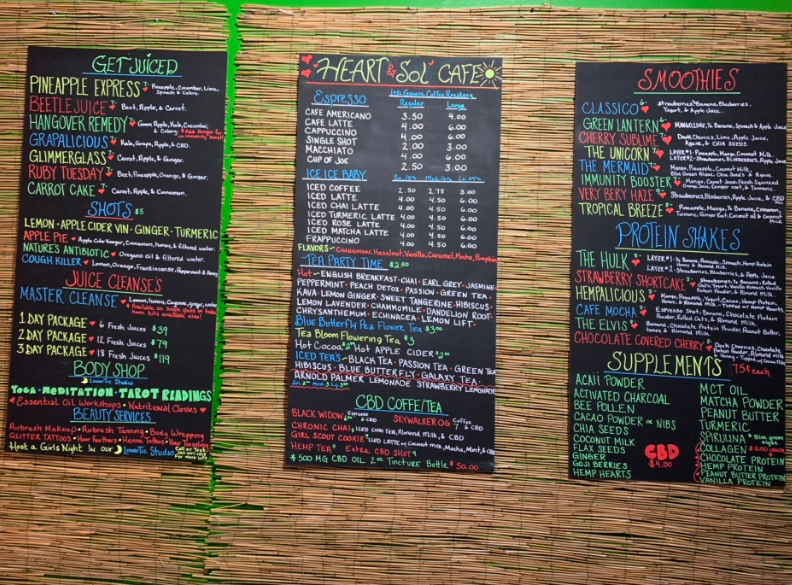 GET JUICED
PINEAPPLE EXPRESS Pineapple, Cucumber, Lime,
Spinach & Celery.
BEETLEJUICE Beet, Apple, & Carrot.
HANGOVER REMEDY Green Apple, Kale, Cucumber,
& Celery.
GRAPALICIOUS Kale, Grape, Apple, & CBD.
GLIMMERGLASS Carrot, Apple, & Ginger.
RUBY TUESDAY Beet, Pineapple, Orange, & Ginger.
CARROT CAKE Carrot, Apple, & Cinnamon.
SHOTS $3
LEMON · APPLE CIDER VIN · GINGER · TURMERIC
APPLE PIE Apple Cider Vinegar, Cinnamon, Honey, & filtered water.
NATURES ANTIBIOTIC Oregano oil & filtered water.
COUGH KILLER Lemon, Orange, Frankincense, Peppermint & Honey
JUICE CLEANSE'S
MASTER CLEANSE Lemon, honey, Cayenne, ginger, water
1 DAY PACKAGE 6 Fresh Juices $39
2 DAY PACKAGE 12 Fresh Juices $79
3 DAY PACKAGE 18 Fresh Juices $119
BODY SHOP
LunarTic Studio
YOGA · MEDITATION · TAROT READINGS
Essential Oil Workshops · Nutritional Classes
BEAUTY SERVICES
Airbrush Makeup · Airbrush Tanning · Body Wrapping
GLITTER TATTOOS · Hair Feathers · Henna Tattoos · Hair Tinseling
Host a Girls Night In our LunarTic Studio
HEART & SOL CAFE
Espresso
Regular Large
CAFE AMERICANO 3.50 4.00
CAFE LATTE 4.00 6.00
CAPPUCCINO 4.00 6.00
SINGLE SHOT 2.00 3.00
MACCHIATO 4.00 6.00
CUP OF JOE 2.50 3.00
ICE ICE BABY
ICED COFFEE 2.50 2.75 3.00
ICED LATTE 4.00 4.50 6.00
ICED CHAI LATTE 4.00 4.50 6.00
ICED TURMERIC LATTE 4.00 4.50 6.00
ICED ROSE LATTE 4.00 4.50 6.00
ICED MATCHA LATTE 4.00 4.50 6.00
FRAPPUCCINO 4.00 4.50 6.00
FLAVORS~ Cinnamon, Hazelnut, Vanilla, Caramel, Mocha, Pumpkin
TEA PARTY TIME $2.50
Hot~ ENGLISH BREAKFAST · CHAI · EARL GREY · JASMINE
PEPPERMINT · PEACH DETOX · PASSION · GREEN TEA
KAVA · LEMON GINGER · SWEET TANGERINE · HIBISCUS
LEMON LAVENDER · CHAMOMILE · DANDELION ROOT
CHRYSANTHEMUM · ECHINACEA · LEMON LIFT
Blue Butterfly Pea Flower Tea $3.00
Tea Bloom Flowering Tea $3
Hot Cocoa $2 Hot APPLE CIDER $2.00
ICED TEAS~ BLACK TEA · PASSION TEA · GREEN TEA
HIBISCUS · BLUE BUTTERFLY · GALAXY TEA
ARNOLD PALMER LEMONADE STRAWBERRY LEMONADE
CBD COFFE/TEA
BLACK WIDOW Espresso & CBD SKYWALKER OG Coffee & CBD
CHRONIC CHAI ICED CHAI TEA, ALMOND MILK, & CBD
GIRL SCOUT COOKIE ICED LATTE w/ Coconut milk, Mocha, Mint, & CBD
HEMP TEA Extra CBD SHOT
500 MG CBD OIL 2oz Tincture Bottle $50.00
SMOOTHIES
CLASSICO Strawberries, Banana, Blueberries,
Yogurt, & Apple Juice.
GREEN LANTERN MANGO, LIME, ½ Banana, Spinach & Apple Juice
CHERRY SUBLIME Dark Cherries, Lime, Apple Juice,
Agave, & CHIA SEEDS.
THE UNICORN LAYER #1~ Pineapple, Mango, Coconut Milk
LAYER #2~ Strawberries, Blueberries, Apple Juice
THE MERMAID Mango, Pineapple, Coconut Milk,
IMMUNITY BOOSTER
VERY BERY HAZE Strawberries, Blueberries, Apple Juice, & CBD
TROPICAL BREEZE Pineapple, Mango, ½ Banana, Cinnamon,
Turmeric, Ginger Root, Coconut oil & Coconut Milk
PROTEIN SHAKES
THE HULK LAYER 1~ ½ Banana, Avocado, Spinach, Hemp Protein
Honey & Almond Milk.
LAYER 2~ Strawberries, Blueberries, & Apple Juice
STRAWBERRY SHORTCAKE
HEMPALICIOUS
CAFE MOCHA Espresso Shot, Banana, Chocolate
Protein Powder, Rolled Oats, & Almond Milk.
THE ELVIS Banana, Chocolate Protein Powder, Peanut Butter,
honey & Almond Milk.
CHOCOLATE COVERED CHERRY Dark Cherries, Chocolate
SUPPLEMENTS 75¢ each
ACAII POWDER
ACTIVATED CHARCOAL
BEE POLLEN
CACAO POWDER or NIBS
CHIA SEEDS
COCONUT MILK
FLAX SEEDS
GINGER
GOJI BERRIES
HEMP HEARTS
CBD
$4.00
MCT OIL
MATCHA POWDER
PEANUT BUTTER
TURMERIC
SPIRULINA
COLLAGEN
CHOCOLATE PROTEIN
HEMP PROTEIN
PEANUT BUTTER PROTEIN
VANILLA PROTEIN